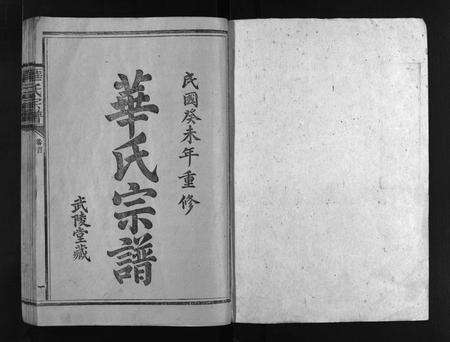 民國癸未年重修
華氏宗譜
武陵堂藏
華氏宗譜
卷首
一